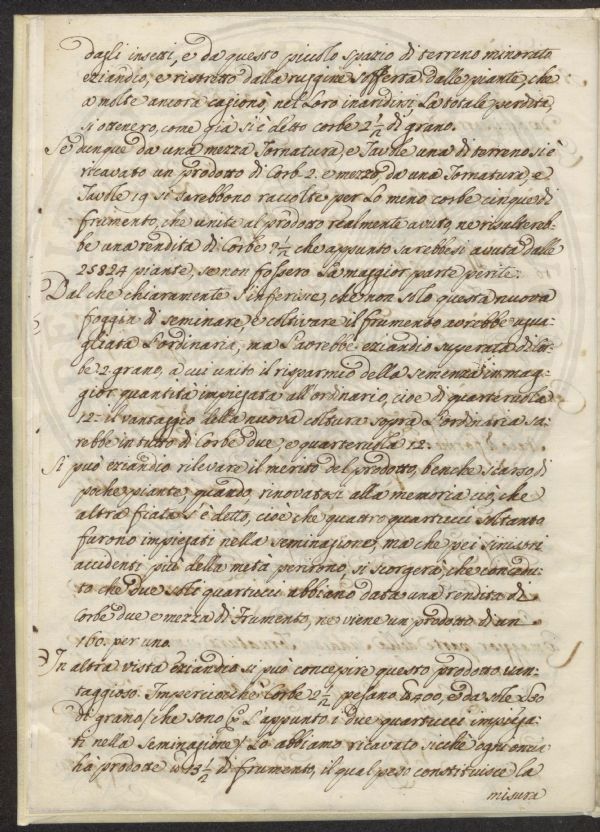 dagli insetti, e da questo piccolo spazio di terreno minorato
eziandio, e ristretto dalla ruggine sofferta dalle piante, che
a molte ancora cagionò, nel loro inaridirsi la totale perdita,
si ottenero, come già si è detto corbe 2 1/2 di grano.
Se dunque da una mezza Tornatura, e Tavole una di terreno si è
ricavato un prodotto di Corb. 2. e mezzo, da una Tornatura, e
Tavole 19 si sarebbono raccolte per lo meno corbe cinque di
frumento, che unite al prodotto realmente avuto, ne risultereb=
be una rendita di Corbe 7 1/2 che appunto sarebbesi avuta dalle
25824 piante, se non fossero la maggior parte perite.
Dal che chiaramente s'inferisce, che non solo questa nuova
foggia di seminare, e coltivare il frumento avrebbe ugua=
gliata l'ordinaria, ma l'avrebbe eziandio superata di Cor=
be 2 grano, a cui unito il risparmio della semenza in mag=
gior quantità impiegata all'ordinario, cioè di quarterciola
12= il vantaggio della nuova coltura sopra l'ordinaria sa=
rebbe in tutto di Corbe due, e quarterciola 12=
Si può eziandio rilevare il merito del prodotto, benche scarso di
poche piante, quando, rinovatosi alla memoria ciò, che
altra fiata s'è detto, cioè che quattro quarticci soltanto
furono impiegati nella seminazione, ma che pei sinistri
accidenti più della metà perirono, si scorgerà, che
to che due soli quarticci abbiano data una rendita di
Corbe due e mezza di Frumento, ne viene un prodotto di un
160. per uno.
In altra vista eziandio si può concepire questo prodotto van=
taggioso. Imperciocchè Corbe 2 1/2 pesano 400, e da sole
di grano (che sono l'appunto i due quarticci impiega=
ti nella seminazione) lo abbiamo ricavato, sicchè ogni oncia
ha prodotte di frumento, il qual peso constituisce la
misura